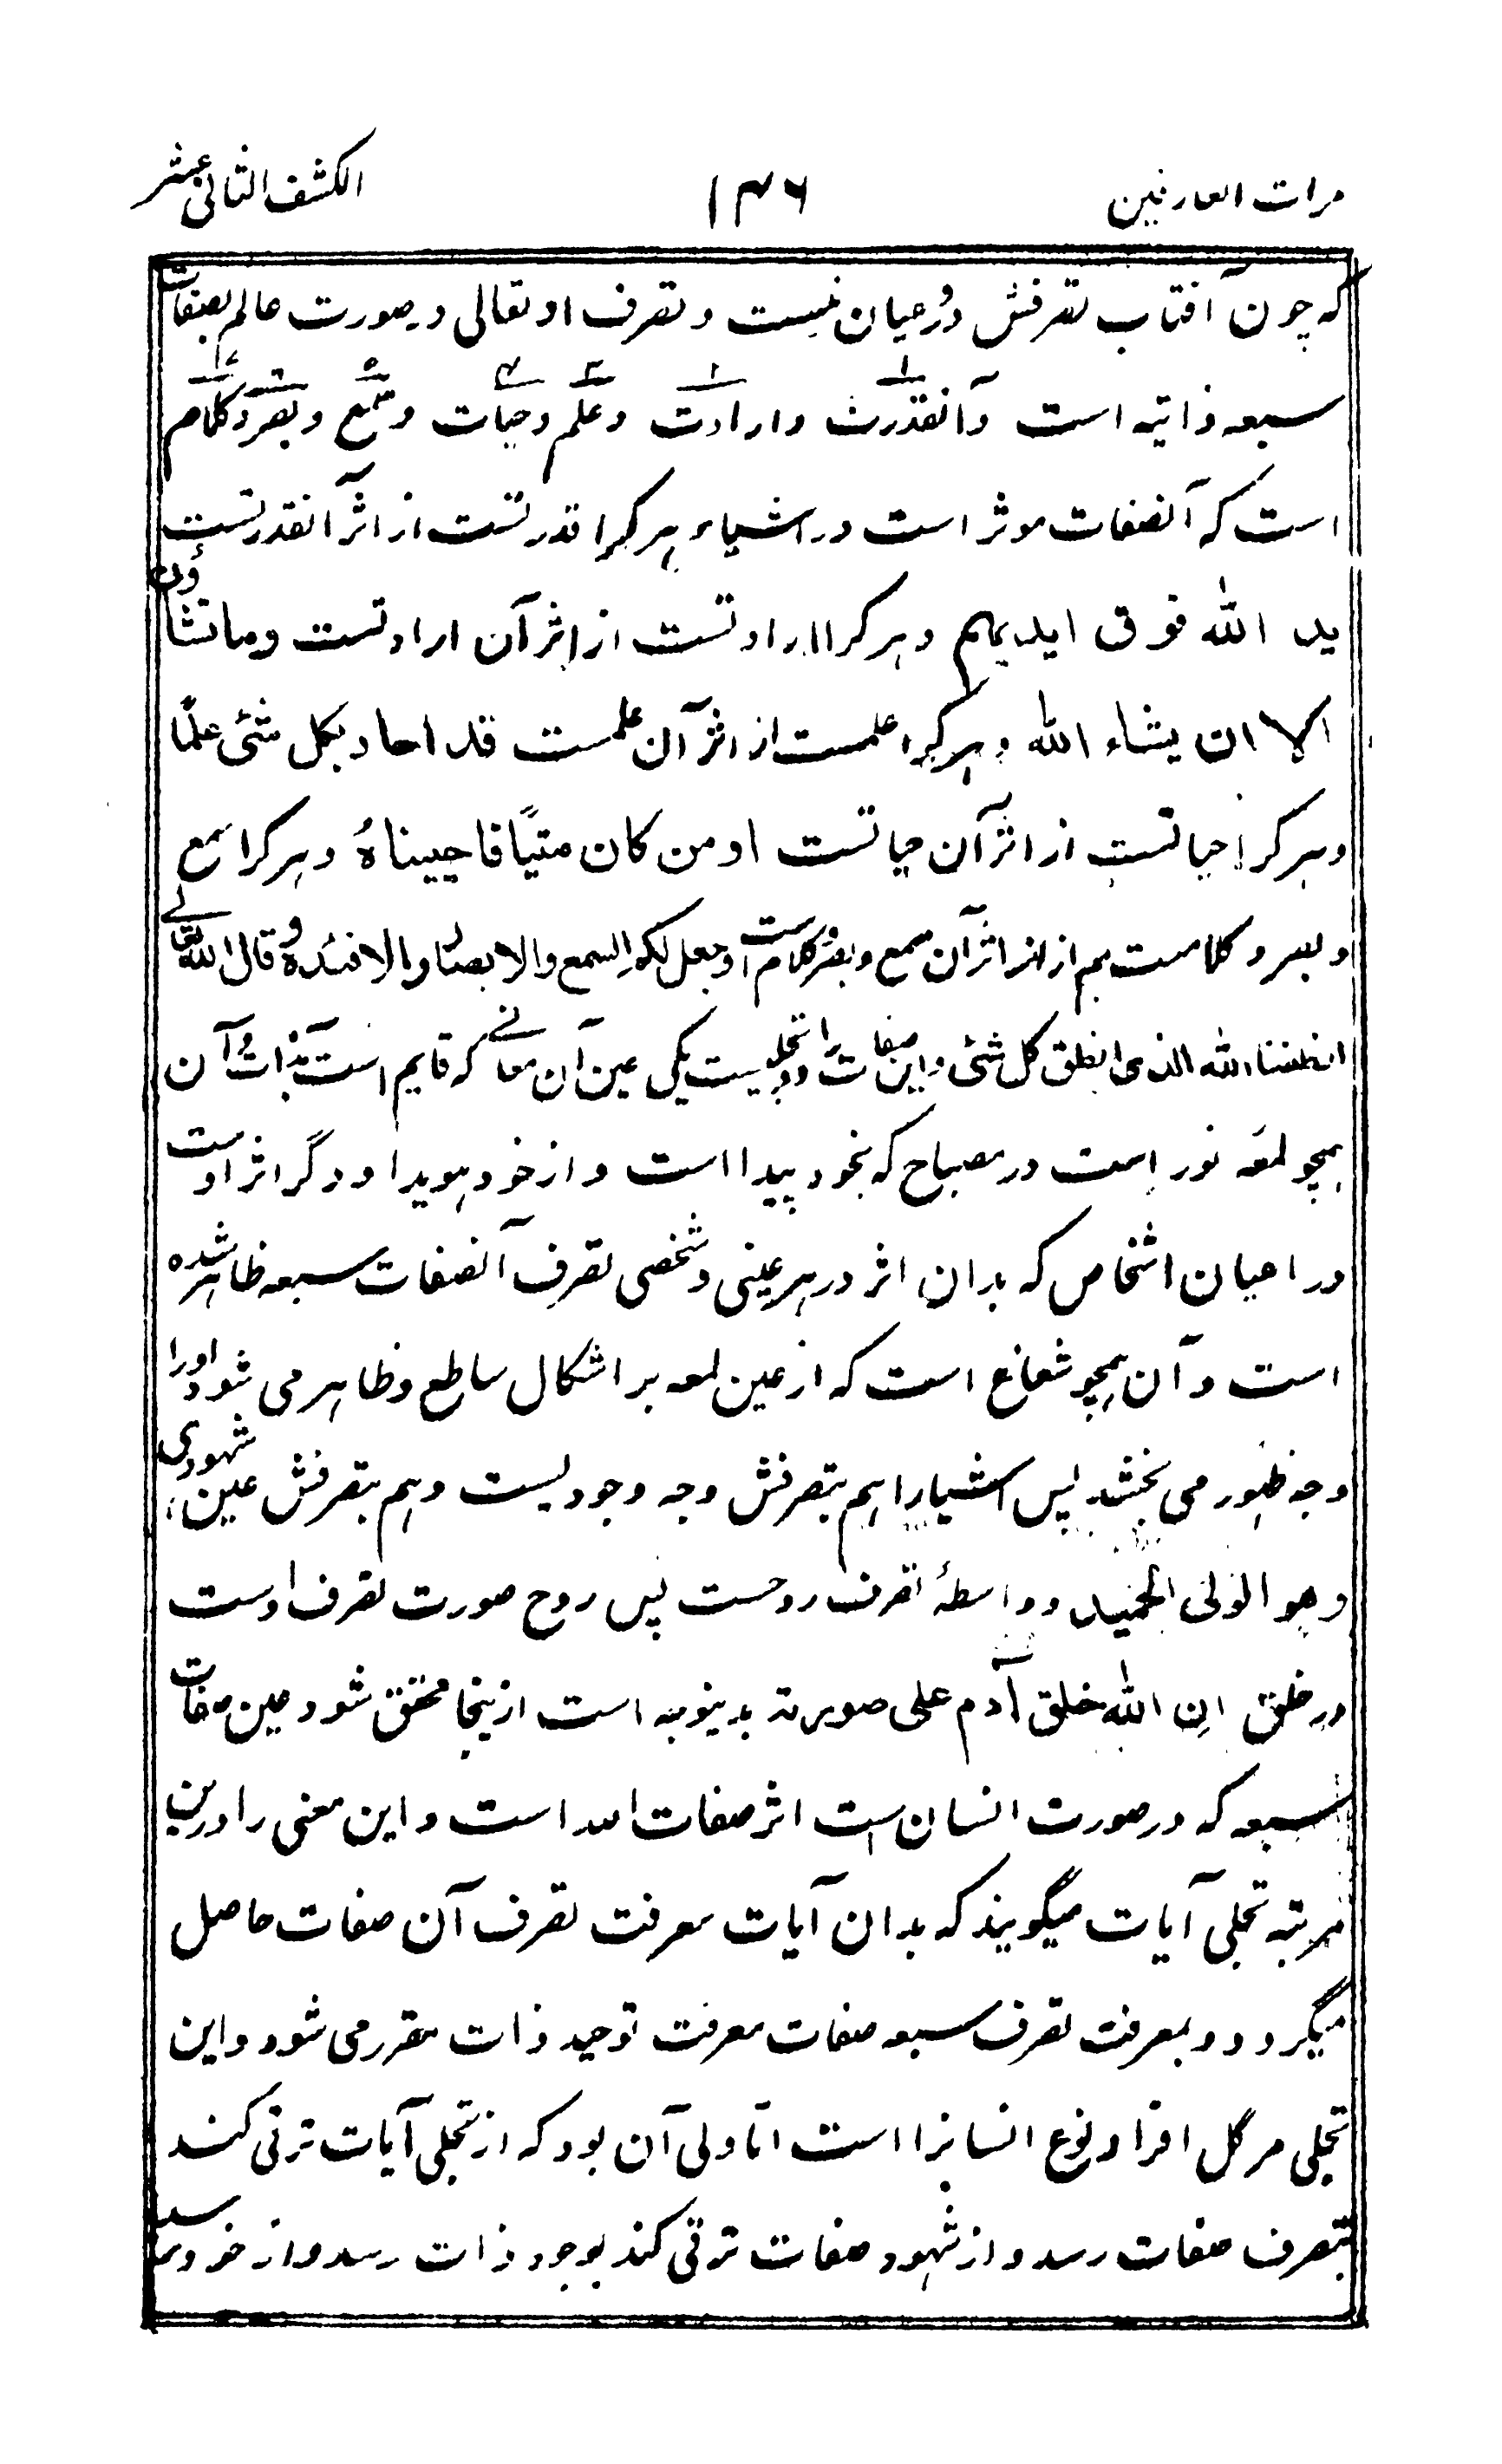 مرات العارفین ۱۴۶ الکشف الثانی عشر
که چون آفتاب تصرفش در عیان نیست و تصرف او تعالی در صورت عالم بصفات
سبعه ذاتیه است و آنقدرت وارادت وعلم وحیات وسمع وبصر وکلام
است که آنصفات موثر است در اشیاء هر کرا قدرتست از اثر آنقدرتست
ید الله فوق ایدیهم وهر کرا ارادتست از اثر آن ارادتست وما تشاؤن
الا ان یشاء الله وهر کرا علمست از اثر آن علمست قد احاد بکل شئی علمًا
وهر کرا حیاتست از اثر آن حیاتست او من کان میتًا فاحییناهُ وهر کرا سمع
وبصر و کلامست هم از اثر آن سمع وبصر وکلام است وجعل لکم السمع والابصار والافئدة وقال الله تعالے
انطقنا الله الذی انطق کل شئی واین صفات را دو تجلیست یکی عین آن معانے که قایم است بذات و آن
همچو لمعَه نور است در مصباح که بخود پیدا است و از خود هویدا و دگر اثر اوست
در اعیان اشخاص که بدان اثر در هر عینی وشخصی تصرف آنصفات سبعه ظاهر شده
است و آن همچو شعاع است که از عین لمعه بر اشکال ساطع وظاهر می شود اورا
وجه ظهور می بخشد پس اشیارا هم بتصرفش وجه وجودیست وهم بتصرفش عین شهودی
وهو الولی الحمید و واسطهٔ تصرف روحست پس روح صورت تصرف اوست
در خلق ان الله خلق آدم علی صورته بدینوجه است ازینجا محقق شود عین صفات
سبعه که در صورت انسان است اثر صفات الله است و این معنی را درین
مرتبه تجلی آیات میگویند که بدان آیات معرفت تصرف آن صفات حاصل
میگردد و بمعرفت تصرف سبعه صفات معرفت توحید ذات مقرر می شود واین
تجلی مر کل افراد نوع انسانرا است اما ولی آن بود که از تجلی آیات ترقی کند
بتصرف صفات رسد و از شهود صفات ترقی کند بوجود ذات رسد و از خود